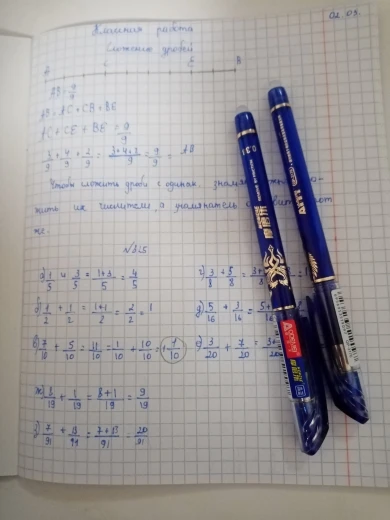 01.03.
Классная работа
Сложение дробей
A C E B
AB = 9/9
AB = AC + CB + BE
AC + CE + BE = 9/9
3/9 + 4/9 + 2/9 = 3+4+2/9 = 9/9 = AB
Чтобы сложить дроби с одинак.
жить их числители, а знаменатель
же.
№325
а) 1/5 + 3/5 = 1+3/5 = 4/5 г) 3/8 + 5/8 = 3+
б) 1/2 + 1/2 = 1+1/2 = 2/2 = 1 д) 5/16 + 3/16 = 5+
в) 7/10 + 5/10 = 11/10 = 1/10 + 10/10 = 1 1/10 е) 3/20 + 7/20 = 3+
ж) 8/19 + 1/19 = 8+1/19 = 9/19
з) 7/91 + 13/91 = 7+13/91 = 20/91